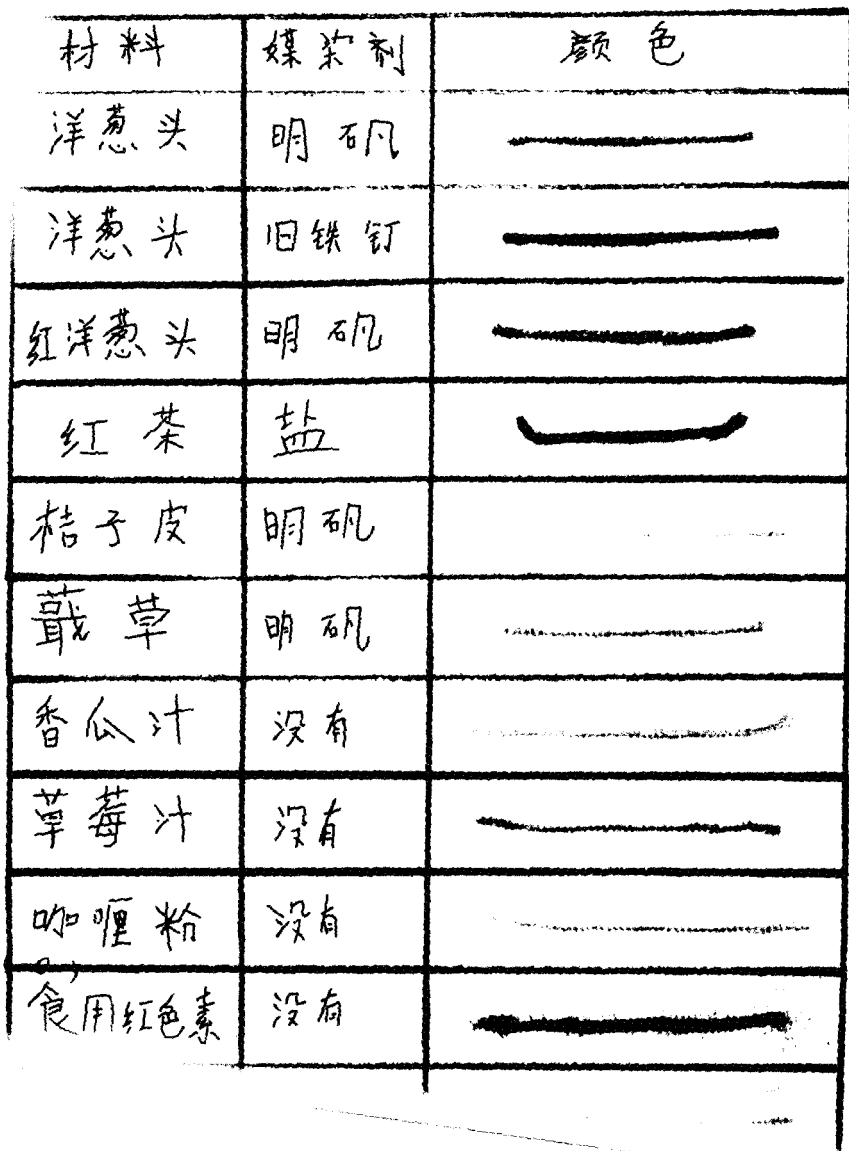 材料 媒染剂 颜色
洋葱头 明矾
洋葱头 旧铁钉
红洋葱头 明矾
红茶 盐
桔子皮 明矾
蕺草 明矾
香瓜汁 没有
草莓汁 没有
咖喱粉 没有
食用红色素 没有